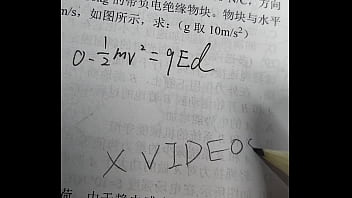 kg的带负电绝缘物块。物块与水平
m/s，如图所示，求：（g 取 10m/s²）
0-½mv²=qEd
X VIDEO